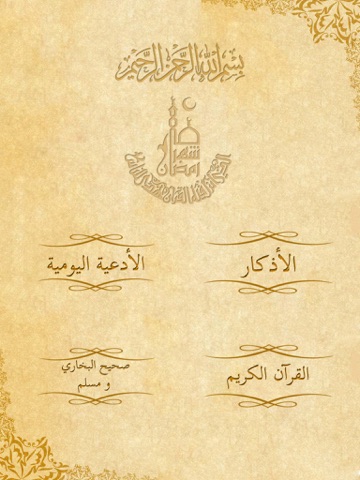 بسم الله الرحمن الرحيم
شهر
رمضان
الأذكار
الأدعية اليومية
القرآن الكريم
صحيح البخاري
و مسلم